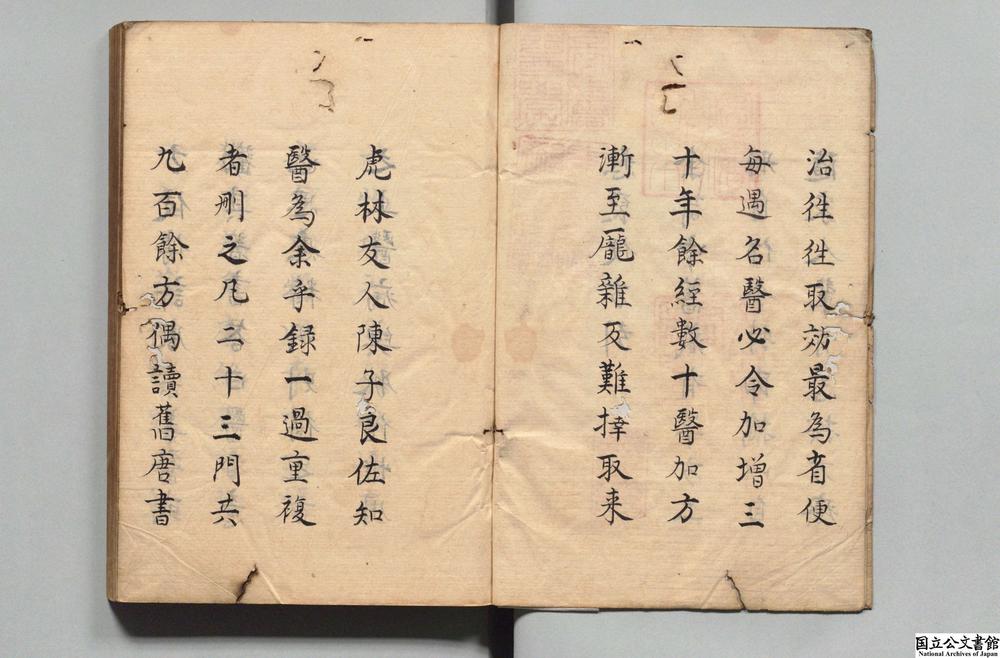 治徃徃取効最為省便
每遇名醫必令加增三
十年餘經數十醫加方
漸至龐雜反難擇取来
虎林友人陳子良佐知
醫為余手録一過重複
者刪之凡二十三門共
九百餘方偶讀舊唐書
国立公文書館
National Archives of Japan